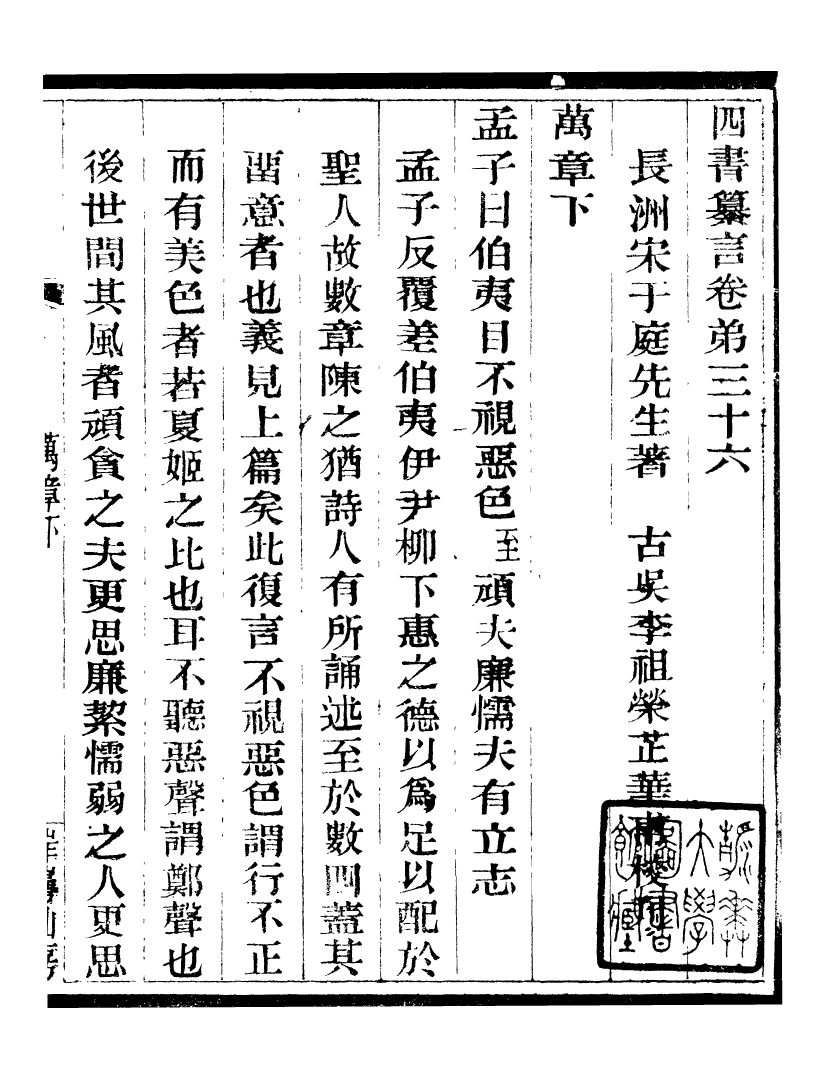 四書纂言卷弟三十六
長洲宋于庭先生著　古吳李祖榮芷華
萬章下
孟子曰伯夷目不視惡色至頑夫廉懦夫有立志
孟子反覆差伯夷伊尹柳下惠之德以爲足以配於
聖人故數章陳之猶詩人有所誦述至於數四蓋其
畱意者也義見上篇矣此復言不視惡色謂行不正
而有美色者若夏姬之比也耳不聽惡聲謂鄭聲也
後世聞其風者頑貪之夫更思廉絜懦弱之人更思
萬章下